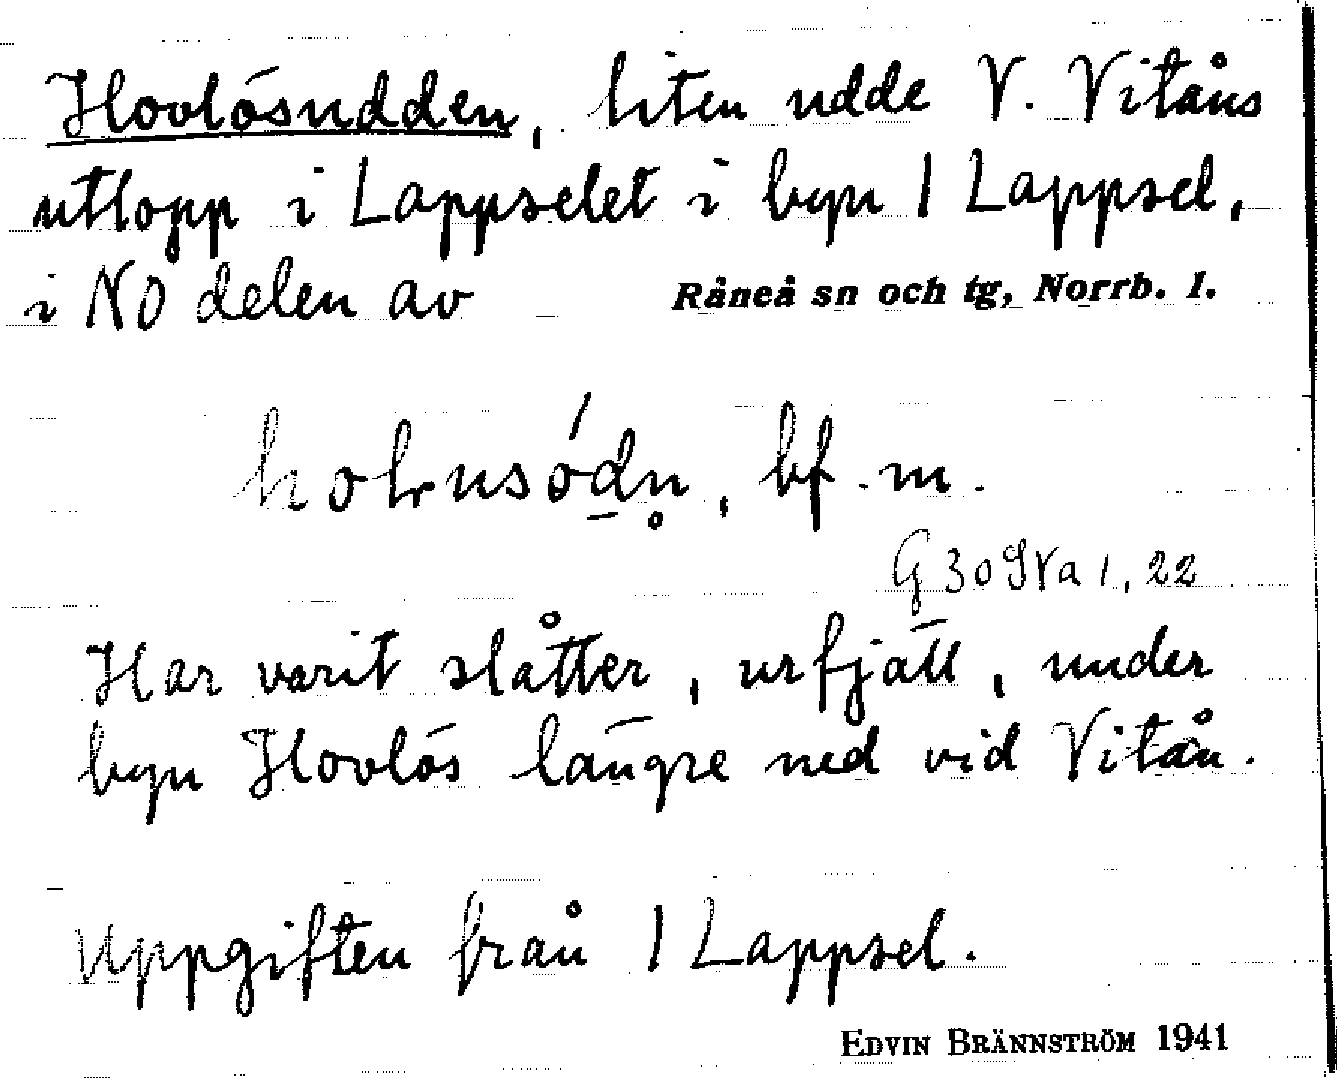 Hovlösudden, liten udde V. Vitåns
utlopp i Lappselet i byn 1 Lappsel,
i NO delen av Råneå sn och tg, Norrb. l.
bf. m.
G 30 SVa 1, 22
Har varit slåtter, urfjäll, under
byn Hovlös längre ned vid Vitån.
Uppgiften från 1 Lappsel.
EDVIN BRÄNNSTRÖM 1941